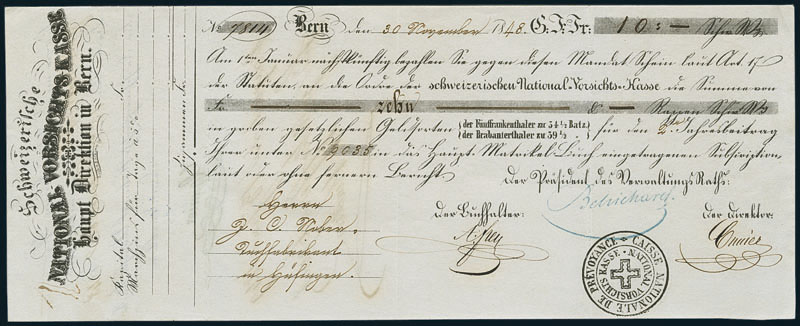 Schweizerische
NATIONAL VORSICHTS KASSE
Haupt Direktion in Bern.
Kapital Fr.
Zusammen Fr.
No 7814 Bern den 30 November 1848. G. F. Fr: 10 :— Schw W.
Am 1ten Januar nächstkünftig bezahlen Sie gegen diesen Mandat Schein laut Art. 17
der Statuten an die Ordre der schweizerischen National-Vorsichts-Kasse die Summe von
Fr. zehn Rappen Schw W.
in groben gesetzlichen Geldsorten { der Fünffrankenthaler zu 34½ Batz. für den Jahresbeitrag
der Brabanterthaler zu 39½ }
Ihrer unter No 9035 in das Haupt-Matrikel-Buch eingetragenen Subscription
laut oder ohne fernern Bericht.
Der Präsident des Verwaltungs Raths:
Herrn
Der Buchhalter:
Der Direktor:
Tuchfabrikant
in
CAISSE NATIONALE DE PRÉVOYANCE
NATIONAL VORSICHTS KASSE